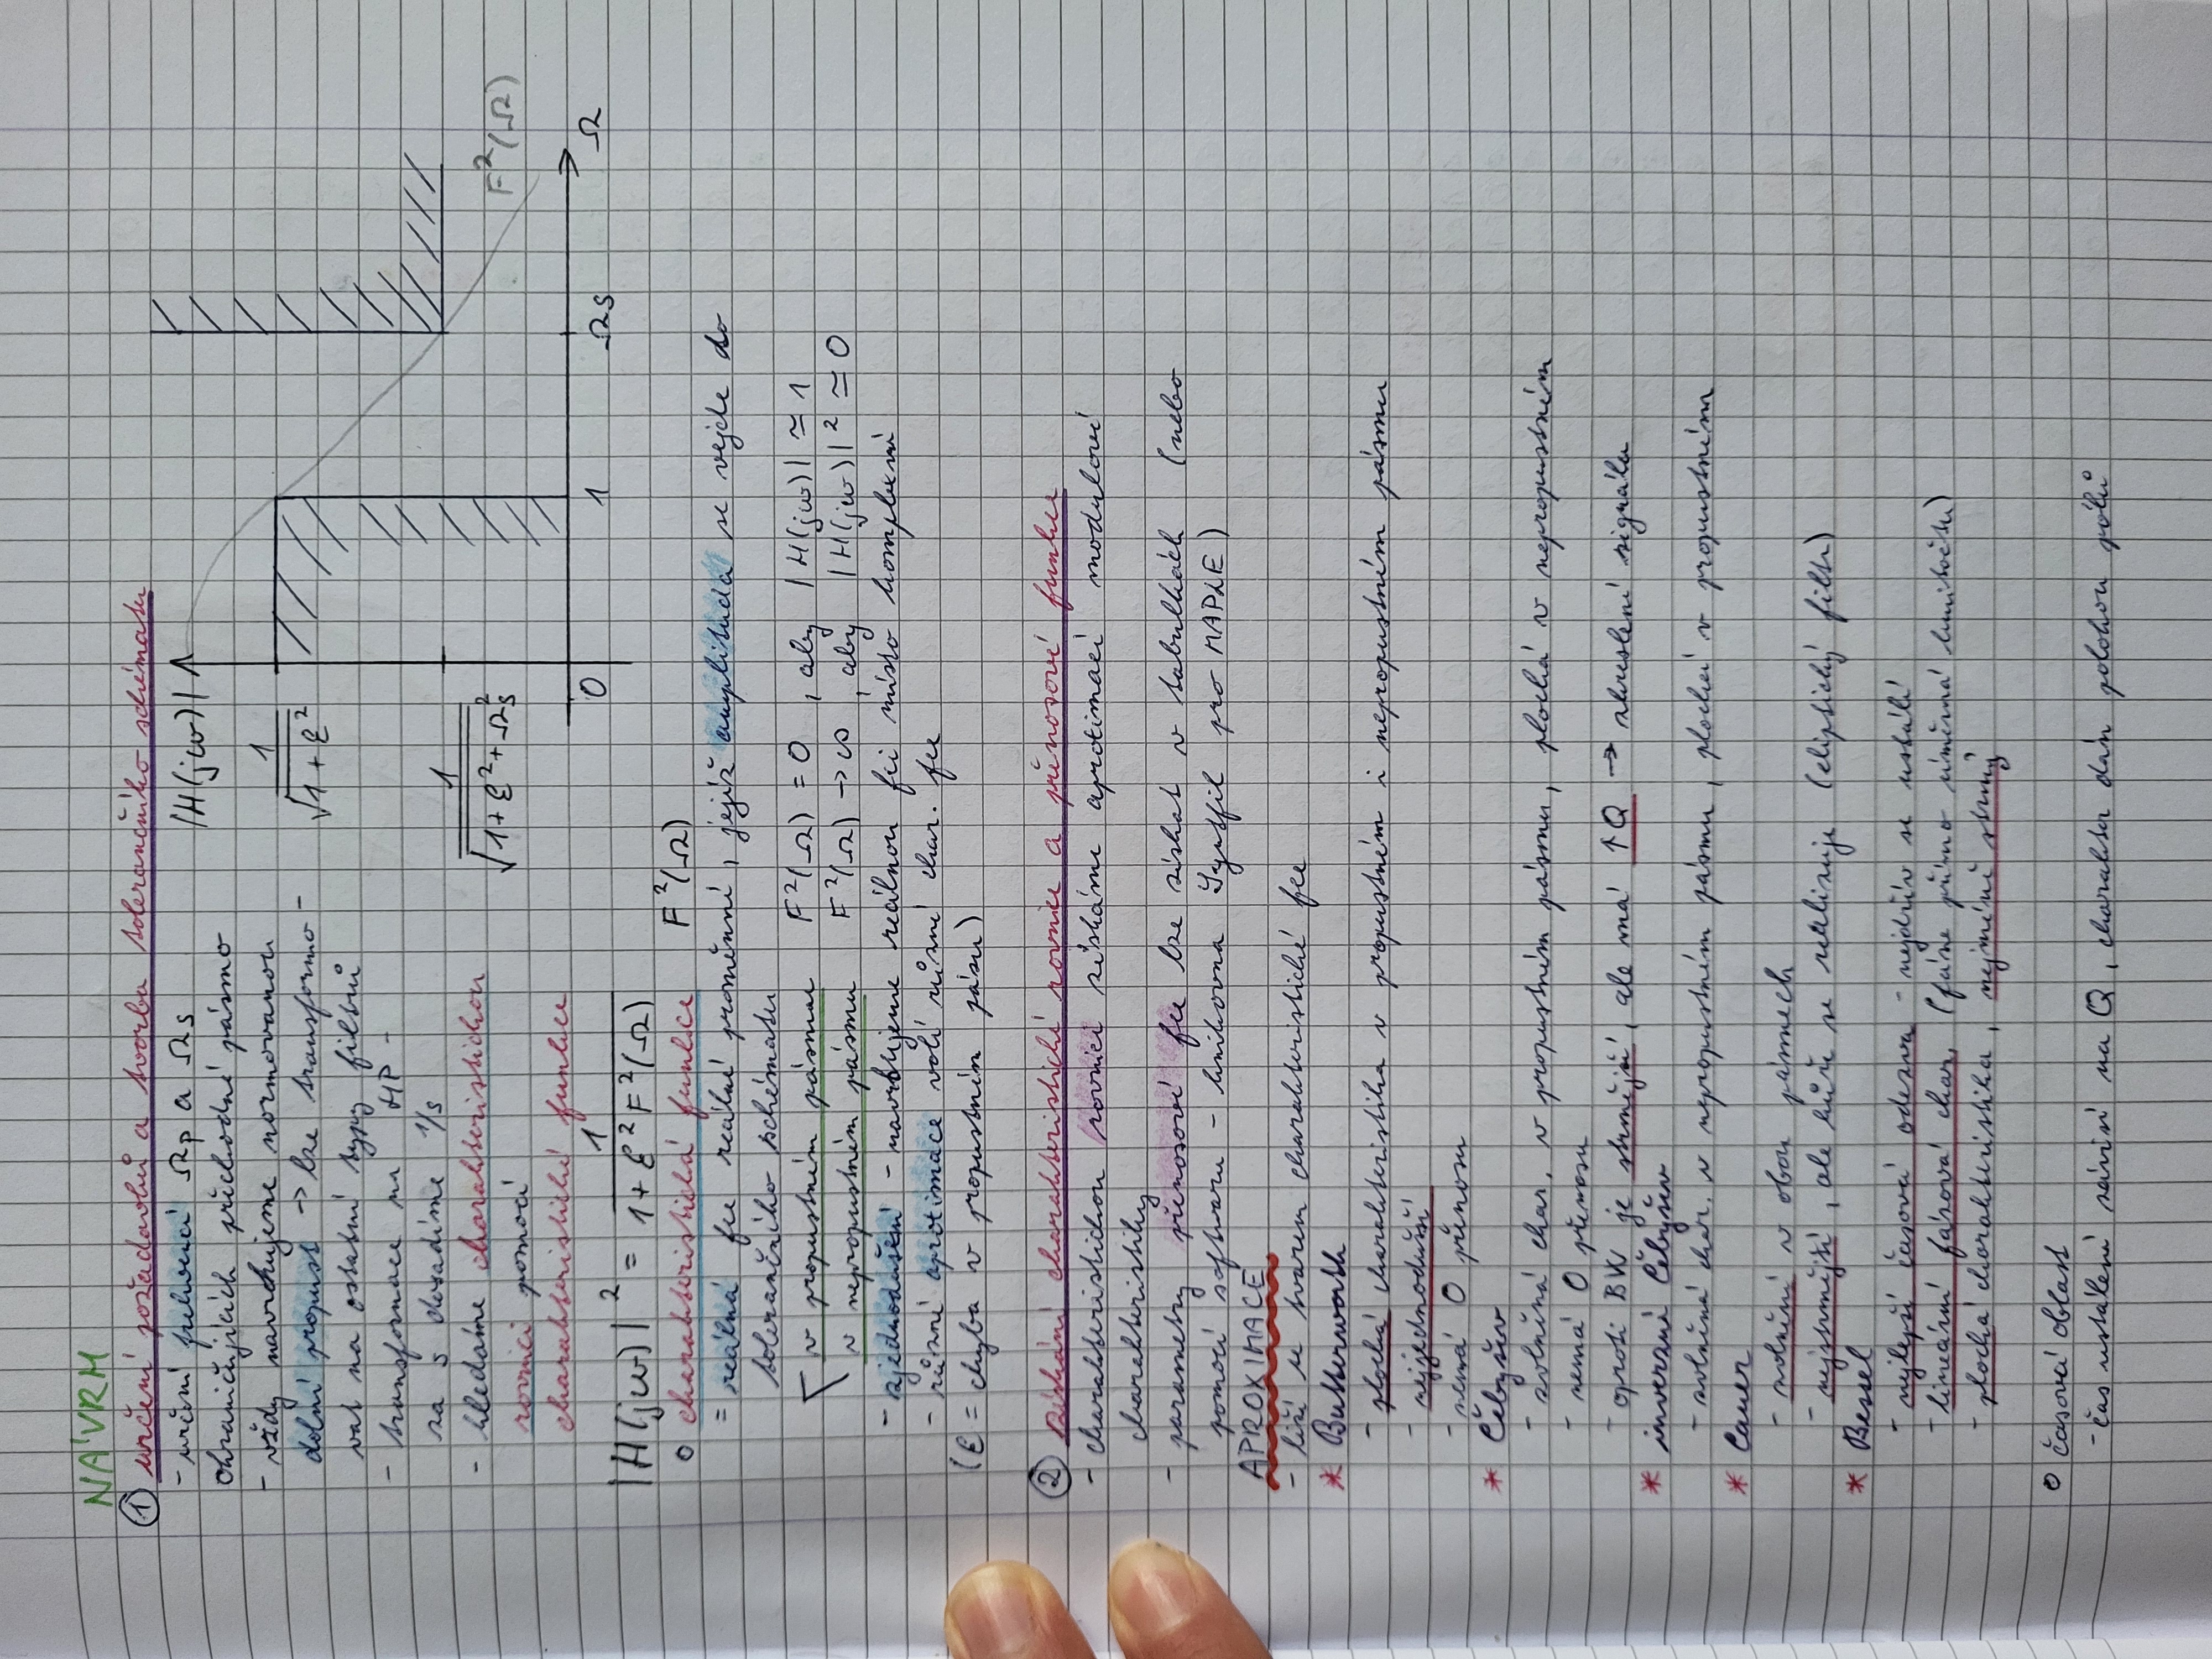 NÁVRH
① určení požadavků a tvorba tolerančního schématu
- určení frekvencí Ωp a Ωs
ohraničujících přechodné pásmo
- vždy navrhujeme normovanou
dolní propust → lze transformo-
vat na ostatní typy filtrů
- transformace na HP -
za s dosadíme 1/s
- hledáme charakteristickou
rovnici pomocí
charakteristické funkce
|H(jω)|
1/√(1+ε²)
1/√(1+ε²+Ωs²)
F²(Ω)
0 1 Ωs Ω
|H(jω)|² = 1/(1+ε²F²(Ω))
o charakteristická funkce F²(Ω)
= reálná fce reálné proměnné, jejíž amplituda se vejde do
tolerančního schématu
v propustném pásmu F²(Ω) = 0, aby |H(jω)| ≃ 1
v nepropustném pásmu F²(Ω) → ∞, aby |H(jω)|² ≃ 0
- zjednodušení - navrhujeme reálnou fci místo komplexní
- různé aproximace volí různé char. fce
(ε = chyba v propustném pásu)
② získání charakteristické rovnice a přenosové funkce
- charakteristickou rovnici získáme aproximací modulové
charakteristiky
- parametry přenosové fce lze získat v tabulkách (nebo
pomocí softwaru - knihovna Syntfil pro MAPLE)
APROXIMACE
- liší se tvarem charakteristické fce
* Butterworth
- plochá charakteristika v propustném i nepropustném pásmu
- nejjednodušší
- nemá 0 přenosu
* Čebyšev
- zvlněná char. v propustném pásmu, plochá v nepropustném
- nemá 0 přenosu
- oproti BW je strmější, ale má ↑Q → zkreslení signálu
* inverzní Čebyšev
- zvlněná char. v nepropustném pásmu, plochá v propustném
* Cauer
- zvlnění v obou pásmech
- nejstrmější, ale hůře se realizuje (eliptický filtr)
* Bessel
- nejlepší časová odezva - nejdřív se ustálí
- lineární fázová char. (fáze přímo úměrná kmitočtu)
- plochá charakteristika, nejméně strmý
o časová oblast
- čas ustálení závisí na Q, charakter dán polohou pólů